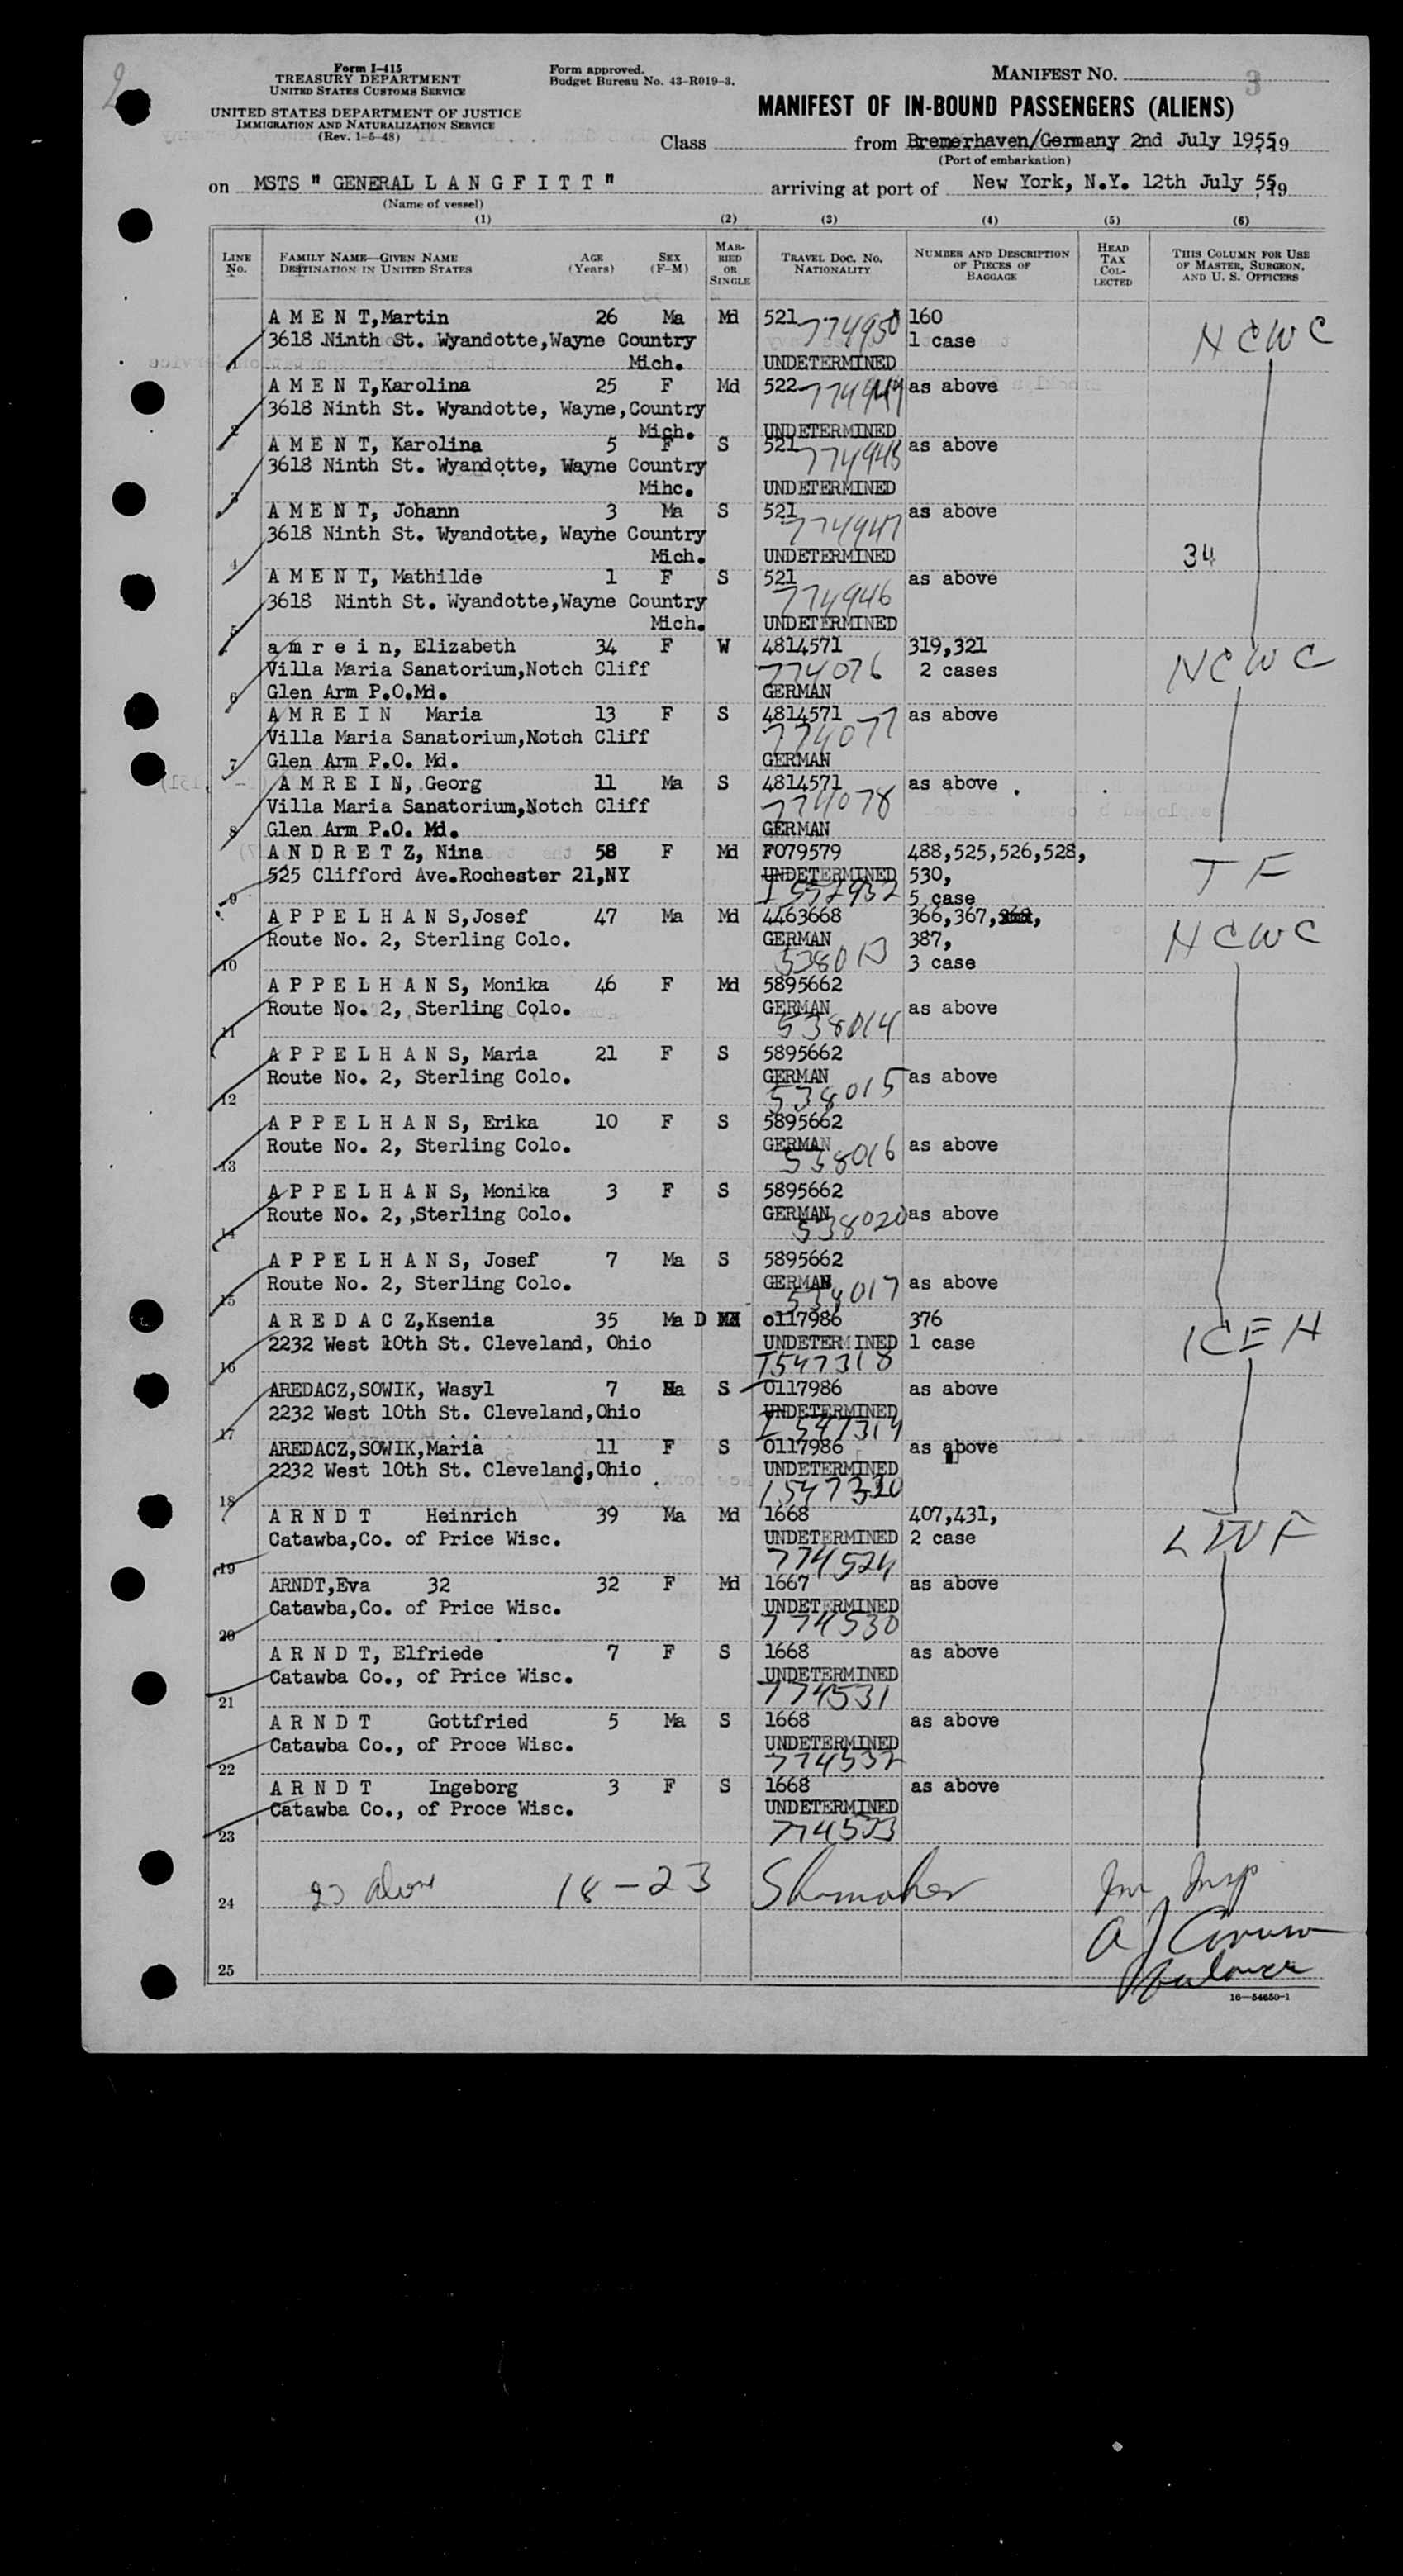 2
Form I-415
TREASURY DEPARTMENT
UNITED STATES CUSTOMS SERVICE
UNITED STATES DEPARTMENT OF JUSTICE
IMMIGRATION AND NATURALIZATION SERVICE
(Rev. 1-5-48)
Form approved.
Budget Bureau No. 43-R019-3.
MANIFEST NO. 3
MANIFEST OF IN-BOUND PASSENGERS (ALIENS)
Class from Bremerhaven/Germany 2nd July 1955
(Port of embarkation)
on MSTS " GENERAL L A N G F I T T " arriving at port of New York, N.Y. 12th July 55
(Name of vessel)
(1) (2) (3) (4) (5) (6)
LINE No. FAMILY NAME—GIVEN NAME DESTINATION IN UNITED STATES AGE (Years) SEX (F-M) MARRIED OR SINGLE TRAVEL DOC. NO. NATIONALITY NUMBER AND DESCRIPTION OF PIECES OF BAGGAGE HEAD TAX COLLECTED THIS COLUMN FOR USE OF MASTER, SURGEON, AND U. S. OFFICERS
A M E N T,Martin 26 Ma Md 521 774950 160 NCWC
3618 Ninth St. Wyandotte,Wayne Country 1 case
1 Mich. UNDETERMINED
A M E N T,Karolina 25 F Md 522 774949 as above
3618 Ninth St. Wyandotte, Wayne,Country
2 Mich. UNDETERMINED
A M E N T, Karolina 5 F S 521 as above
3618 Ninth St. Wyandotte, Wayne Country 774948
3 Mihc. UNDETERMINED
A M E N T, Johann 3 Ma S 521 as above
3618 Ninth St. Wyandotte, Wayne Country 774947
4 Mich. UNDETERMINED 34
A M E N T, Mathilde 1 F S 521 as above
3618 Ninth St. Wyandotte,Wayne Country 774946
5 Mich. UNDETERMINED
a m r e i n, Elizabeth 34 F W 4814571 319,321 NCWC
Villa Maria Sanatorium,Notch Cliff 774076 2 cases
6 Glen Arm P.O.Md. GERMAN
A M R E I N Maria 13 F S 4814571 as above
Villa Maria Sanatorium,Notch Cliff 774077
7 Glen Arm P.O. Md. GERMAN
A M R E I N, Georg 11 Ma S 4814571 as above
Villa Maria Sanatorium,Notch Cliff 774078
8 Glen Arm P.O. Md. GERMAN
A N D R E T Z, Nina 58 F Md F079579 488,525,526,528, TF
525 Clifford Ave.Rochester 21,NY UNDETERMINED 530,
9 I 552932 5 case
A P P E L H A N S,Josef 47 Ma Md 4463668 366,367, NCWC
Route No. 2, Sterling Colo. GERMAN 387,
10 538013 3 case
A P P E L H A N S, Monika 46 F Md 5895662
Route No. 2, Sterling Colo. GERMAN as above
11 538014
A P P E L H A N S, Maria 21 F S 5895662
Route No. 2, Sterling Colo. GERMAN as above
12 538015
A P P E L H A N S, Erika 10 F S 5895662
Route No. 2, Sterling Colo. GERMAN as above
13 538016
A P P E L H A N S, Monika 3 F S 5895662
Route No. 2, ,Sterling Colo. GERMAN as above
14 538020
A P P E L H A N S, Josef 7 Ma S 5895662
Route No. 2, Sterling Colo. GERMAN as above
15 538017
A R E D A C Z,Ksenia 35 Ma D o117986 376 ICEH
2232 West 10th St. Cleveland, Ohio UNDETERMINED 1 case
16 I547318
AREDACZ,SOWIK, Wasyl 7 Ma S 0117986 as above
2232 West 10th St. Cleveland,Ohio UNDETERMINED
17 I 547319
AREDACZ,SOWIK,Maria 11 F S 0117986 as above
2232 West 10th St. Cleveland,Ohio UNDETERMINED
18 I547320
A R N D T Heinrich 39 Ma Md 1668 407,431, LWF
Catawba,Co. of Price Wisc. UNDETERMINED 2 case
19 774524
ARNDT,Eva 32 32 F Md 1667 as above
Catawba,Co. of Price Wisc. UNDETERMINED
20 774530
A R N D T, Elfriede 7 F S 1668 as above
Catawba Co., of Price Wisc. UNDETERMINED
21 774531
A R N D T Gottfried 5 Ma S 1668 as above
Catawba Co., of Proce Wisc. UNDETERMINED
22 774532
A R N D T Ingeborg 3 F S 1668 as above
Catawba Co., of Proce Wisc. UNDETERMINED
23 774533
24 23 18-23 Shumaker Im Insp
25 A J
16—54650-1